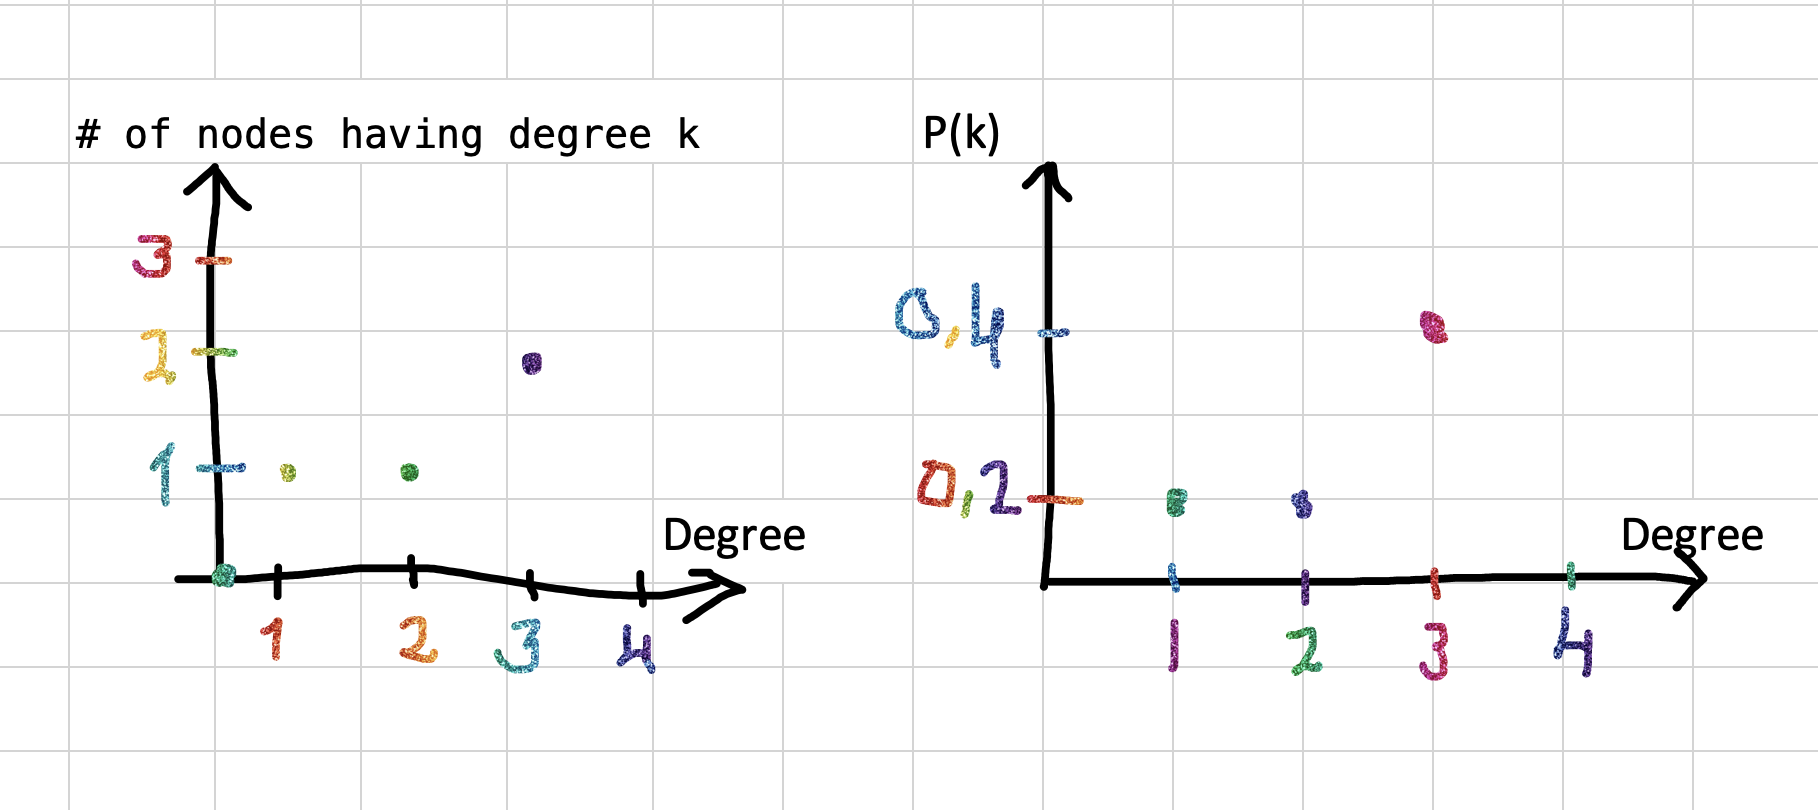 # of nodes having degree k
3
2
1
Degree
1 2 3 4
P(k)
0,4
0,2
Degree
1 2 3 4